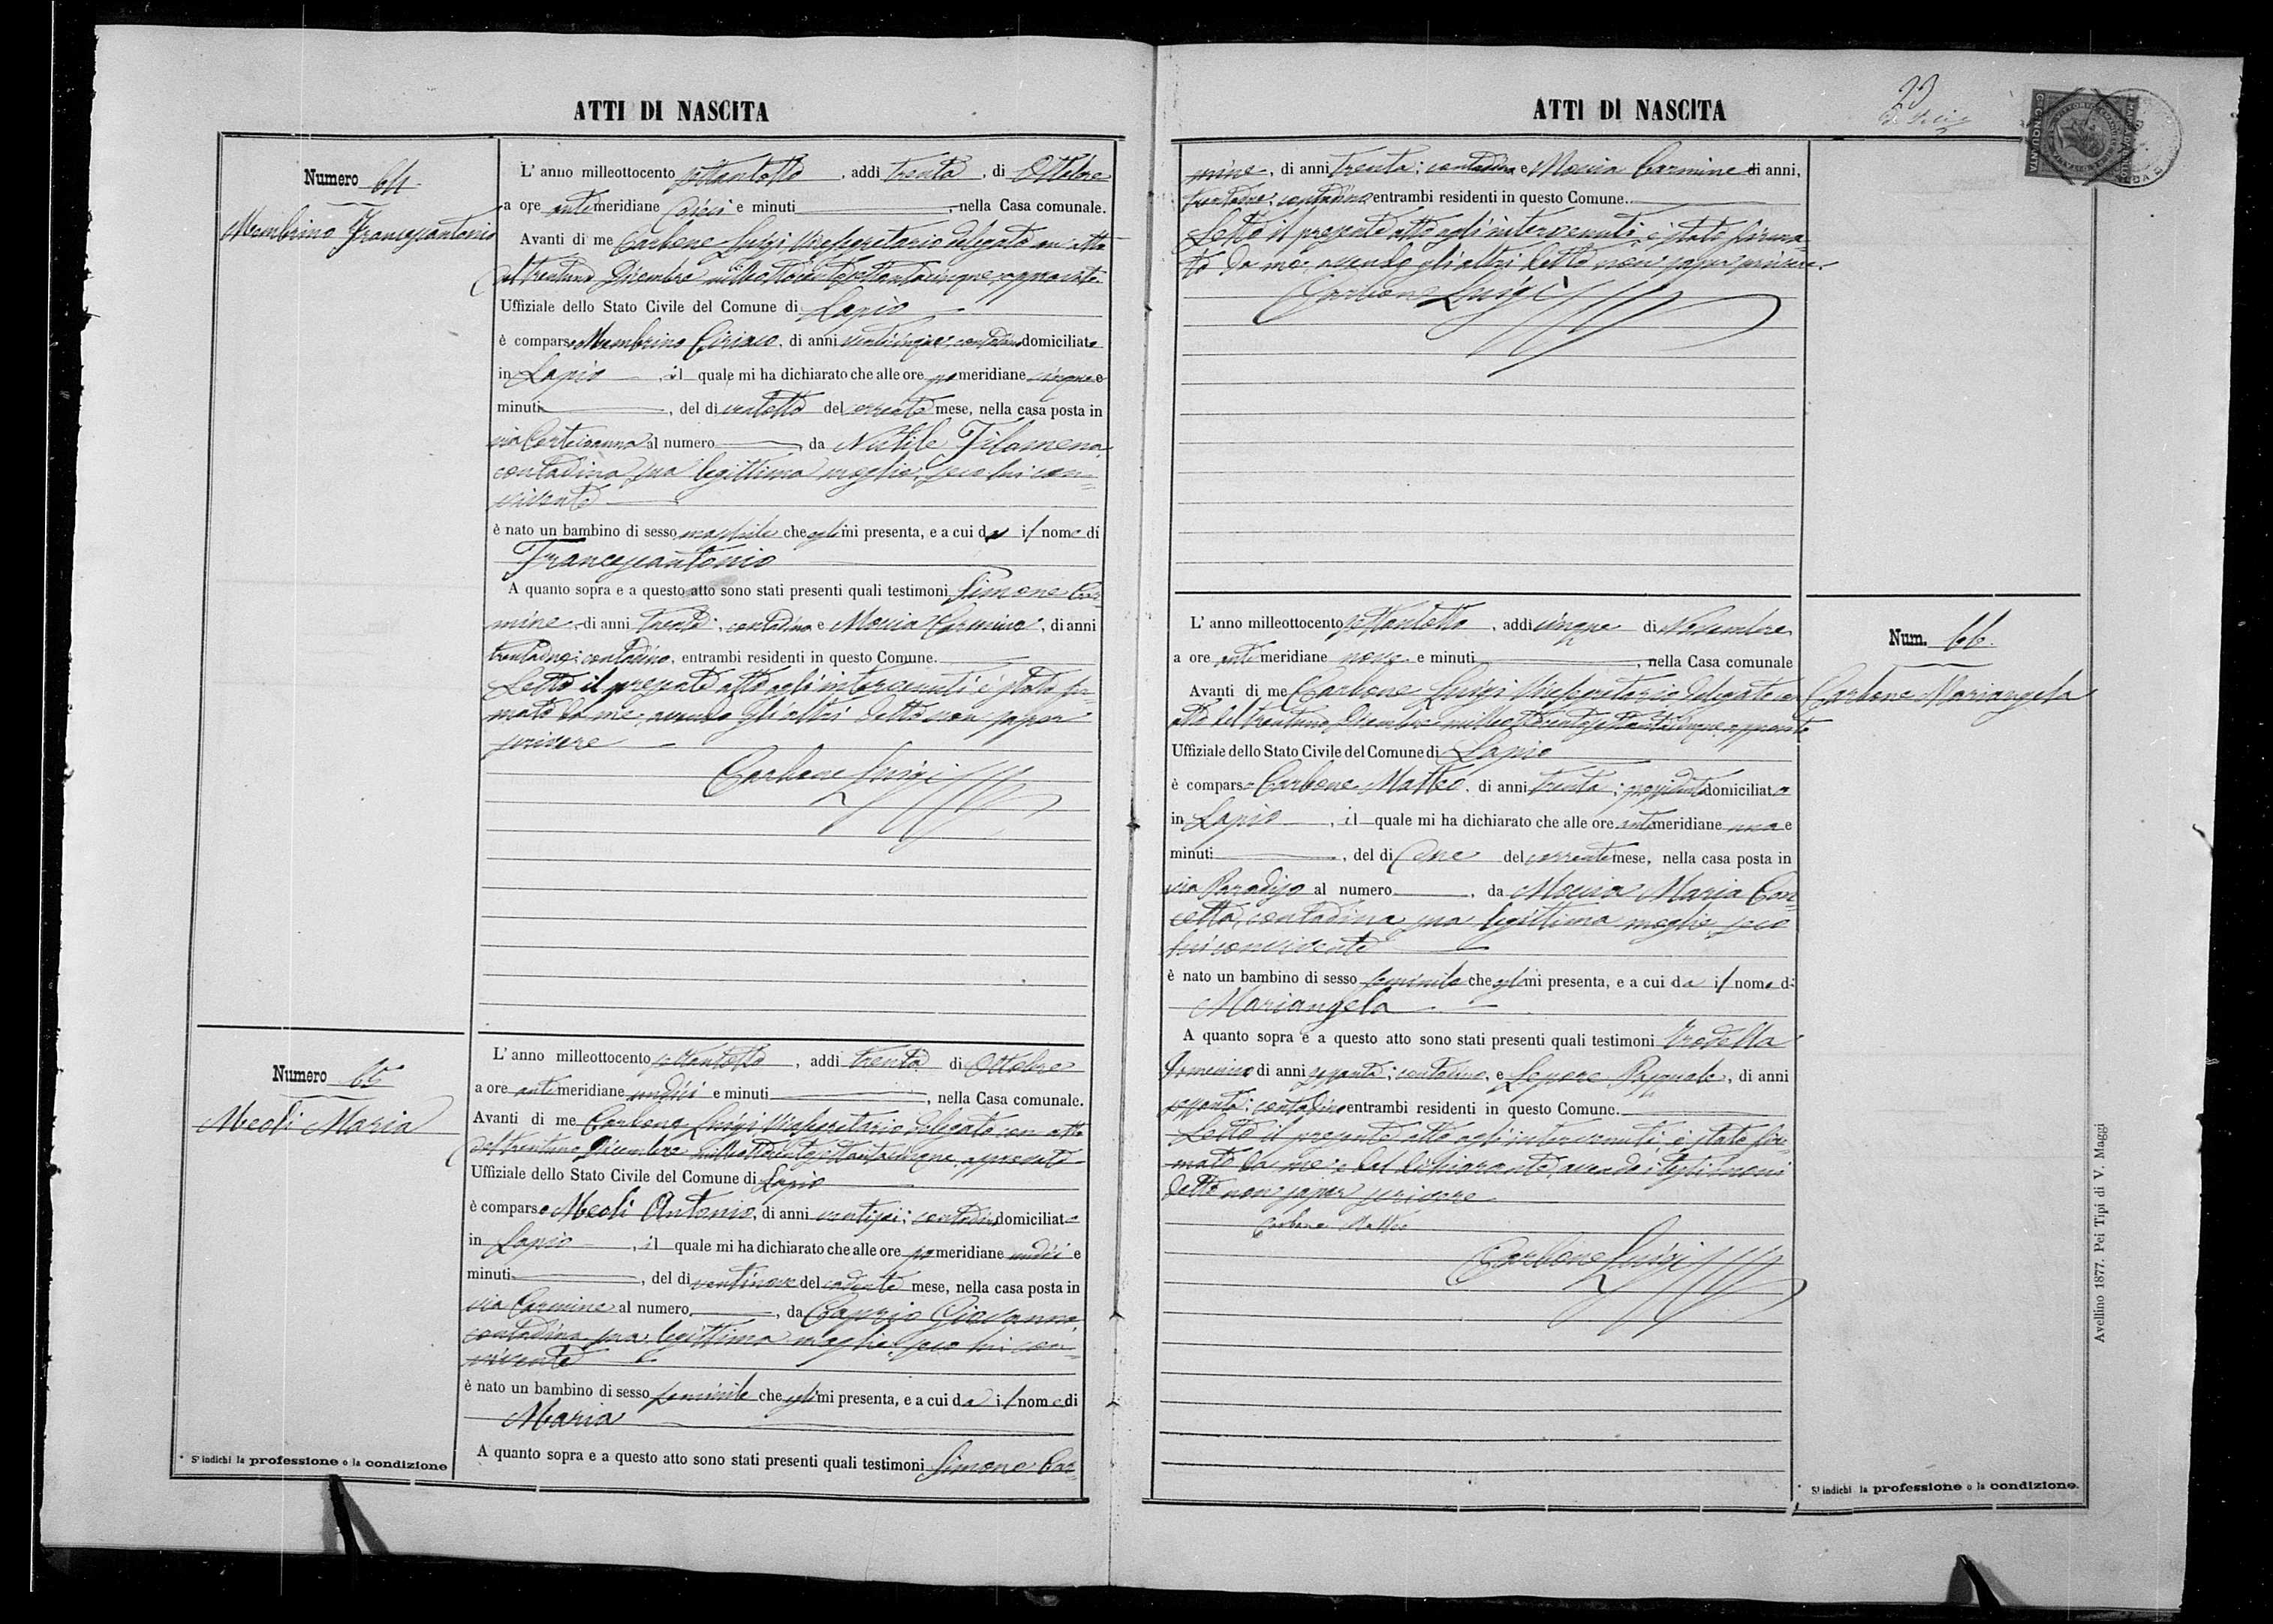 ATTI DI NASCITA
Numero 64.
Membrino Francescantonio
L' anno milleottocento settantotto, addi trenta, di Ottobre
a ore antimeridiane dieci e minuti , nella Casa comunale.
Avanti di me Carbone Luigi Vicesegretario delegato con atto
del trentuno Dicembre milleottocentosettantacinque, approvato
Uffiziale dello Stato Civile del Comune di Lapio
è comparso Membrino Ciriaco, di anni venticinque; contadino domiciliato
in Lapio , il quale mi ha dichiarato che alle ore pomeridiane cinque e
minuti , del di ventotto del corrente mese, nella casa posta in
via al numero , da Nutile Filomena,
contadina sua legittima moglie, seco lui con=
vivente
è nato un bambino di sesso maschile che egli mi presenta, e a cui da il nome di
Francescantonio
A quanto sopra e a questo atto sono stati presenti quali testimoni Simone Car=
mine, di anni trenta; contadino e Moccia Carmine, di anni
trentadue; contadino, entrambi residenti in questo Comune.
Letto il presente atto agli intervenuti è stato fir=
mato da me, avendo gli altri detto non saper
scrivere
Carbone Luigi
Numero 65
Meoli Maria
L' anno milleottocento settantotto, addi trenta di Ottobre
a ore antimeridiane undici e minuti , nella Casa comunale.
Avanti di me Carbone Luigi Vicesegretario delegato con atto
del trentuno Dicembre milleottocentosettantacinque, approvato
Uffiziale dello Stato Civile del Comune di Lapio
è comparso Meoli Antonio, di anni ventisei; contadino domiciliato
in Lapio , il quale mi ha dichiarato che alle ore pomeridiane undici e
minuti , del di ventinove del cadente mese, nella casa posta in
via Carmine al numero , da Caprio Giovanna,
contadina sua legittima moglie, seco lui con=
vivente
è nato un bambino di sesso feminile che egli mi presenta, e a cui da il nome di
Maria
A quanto sopra e a questo atto sono stati presenti quali testimoni Simone Car=
* S' indichi la professione o la condizione
ATTI DI NASCITA
23
mine, di anni trenta; contadino e Moccia Carmine di anni,
trentadue; contadino entrambi residenti in questo Comune.
Letto il presente atto agli intervenuti è stato firma=
to da me, avendo gli altri detto non saper scrivere.
Carbone Luigi
L' anno milleottocento settantotto, addi cinque di Novembre
a ore antimeridiane nove e minuti , nella Casa comunale
Avanti di me Carbone Luigi Vicesegretario delegato con
atto del trentuno Dicembre milleottocentosettantacinque, approvato
Uffiziale dello Stato Civile del Comune di Lapio
è comparso Carbone Matteo, di anni trenta; possidente domiciliato
in Lapio , il quale mi ha dichiarato che alle ore antimeridiane una e
minuti , del di due del corrente mese, nella casa posta in
via Paradiso al numero , da Moccia Maria Con=
cetta, contadina sua legittima moglie, seco
lui convivente
è nato un bambino di sesso feminile che egli mi presenta, e a cui da il nome di
Mariangela
A quanto sopra e a questo atto sono stati presenti quali testimoni Trodella
di anni sessanta; contadino, e Lepore Pasquale, di anni
sessanta; contadino entrambi residenti in questo Comune.
Letto il presente atto agli intervenuti, è stato fir=
mato da me e dal dichiarante, avendo i testimoni
detto non saper scrivere
Carbone Matteo
Carbone Luigi
Num. 66.
Carbone Mariangela
* S' indichi la professione o la condizione.
Avellino 1877. Pei Tipi di V. Maggi